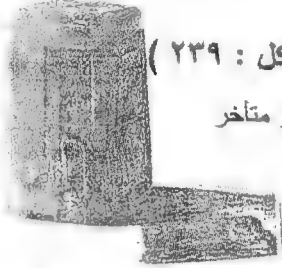 كل : ٢٣٩ )
متأخر